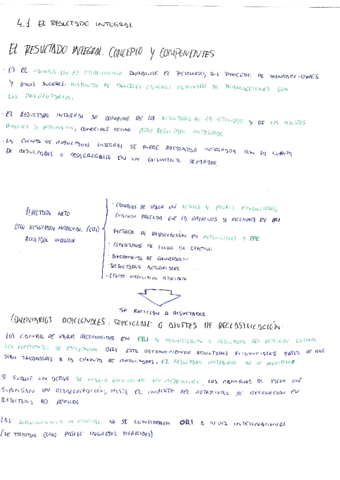 4.1 EL RESULTADO INTEGRAL
EL RESULTADO INTEGRAL. CONCEPTO Y COMPONENTES
· ES EL CAMBIO EN EL PATRIMONIO DURANTE EL PERIODO, QUE PROCEDE DE TRANSACCIONES
Y OTROS SUCESOS DISTINTOS DE AQUELLOS CAMBIOS DERIVADOS DE TRANSACCIONES CON
LOS PROPIETARIOS.
· EL RESULTADO INTEGRAL SE COMPONE DE LOS RESULTADOS DE LA ACTIVIDAD Y DE LOS AJUSTES
CONOCIDOS COMO OTRO RESULTADO INTEGRAL
· LA CUENTA DE RESULTADOS INTEGRAL SE PUEDE PRESENTAR INTEGRADA CON LA CUENTA
DE RESULTADOS O EN UN DOCUMENTO SEPARADO
RESULTADO NETO
OTRO RESULTADO INTEGRAL (ORI)
RESULTADO INTEGRAL
· CAMBIOS DE VALOR EN ACTIVOS Y PASIVOS FINANCIEROS,
QUE LA EMPRESA SE RECONOCE EN ORI
· MÉTODO DE REVALORIZACIÓN EN INTANGIBLES Y PPE
· COBERTURAS DE FLUJO DE EFECTIVO
· DIFERENCIAS DE CONVERSIÓN
· RESULTADOS ACTUARIALES
· EFECTO IMPOSITIVO
SE RECICLAN A RESULTADOS
COMENTARIOS ADICIONALES. RECICLAJE O AJUSTES DE RECLASIFICACIÓN
LOS CAMBIOS DE VALOR RECONOCIDOS EN ORI SE A RESULTADOS DEL PERIODO CUANDO
LOS ELEMENTOS SE ORI ESTÁ RECONOCIENDO RESULTADOS ANTES DE QUE
SEAN TRASPASADOS A LA CUENTA DE RESULTADOS. EL RESULTADO INTEGRAL NO SE MODIFICA
SI SOBRE UN ACTIVO SE DE DETERIORO, LOS CAMBIOS DE VALOR QUE
SUPONGAN UN HASTA EL IMPORTE DEL DETERIORO SE RECONOCEN EN
RESULTADOS DEL PERIODO
LAS SUBVENCIONES DE CAPITAL NO SE CONSIDERAN ORI A NIVEL INTERNACIONAL
(SE TRATAN COMO INGRESOS DIFERIDOS)